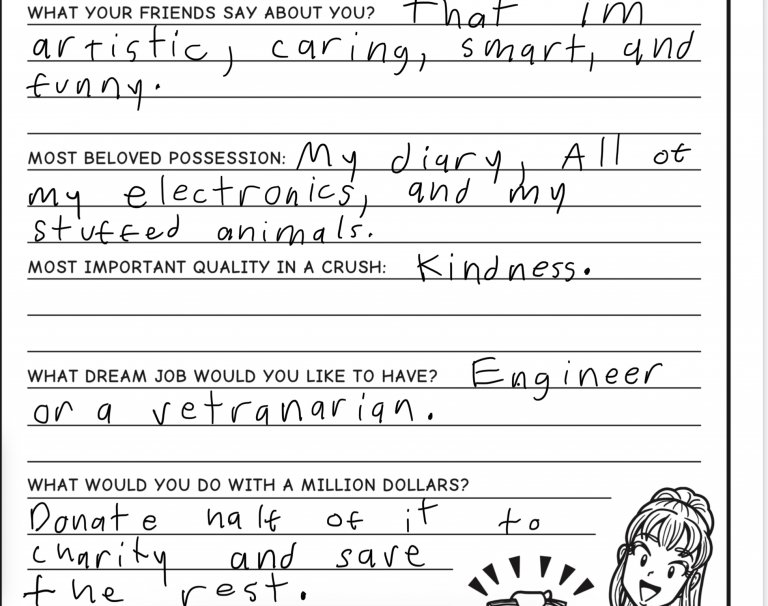 WHAT YOUR FRIENDS SAY ABOUT YOU? That Im
artistic, caring, smart, and
funny.
MOST BELOVED POSSESSION: My diary, All of
my electronics, and my
stuffed animals.
MOST IMPORTANT QUALITY IN A CRUSH: Kindness.
WHAT DREAM JOB WOULD YOU LIKE TO HAVE? Engineer
or a vetranarian.
WHAT WOULD YOU DO WITH A MILLION DOLLARS?
Donate half of it to
charity and save
the rest.